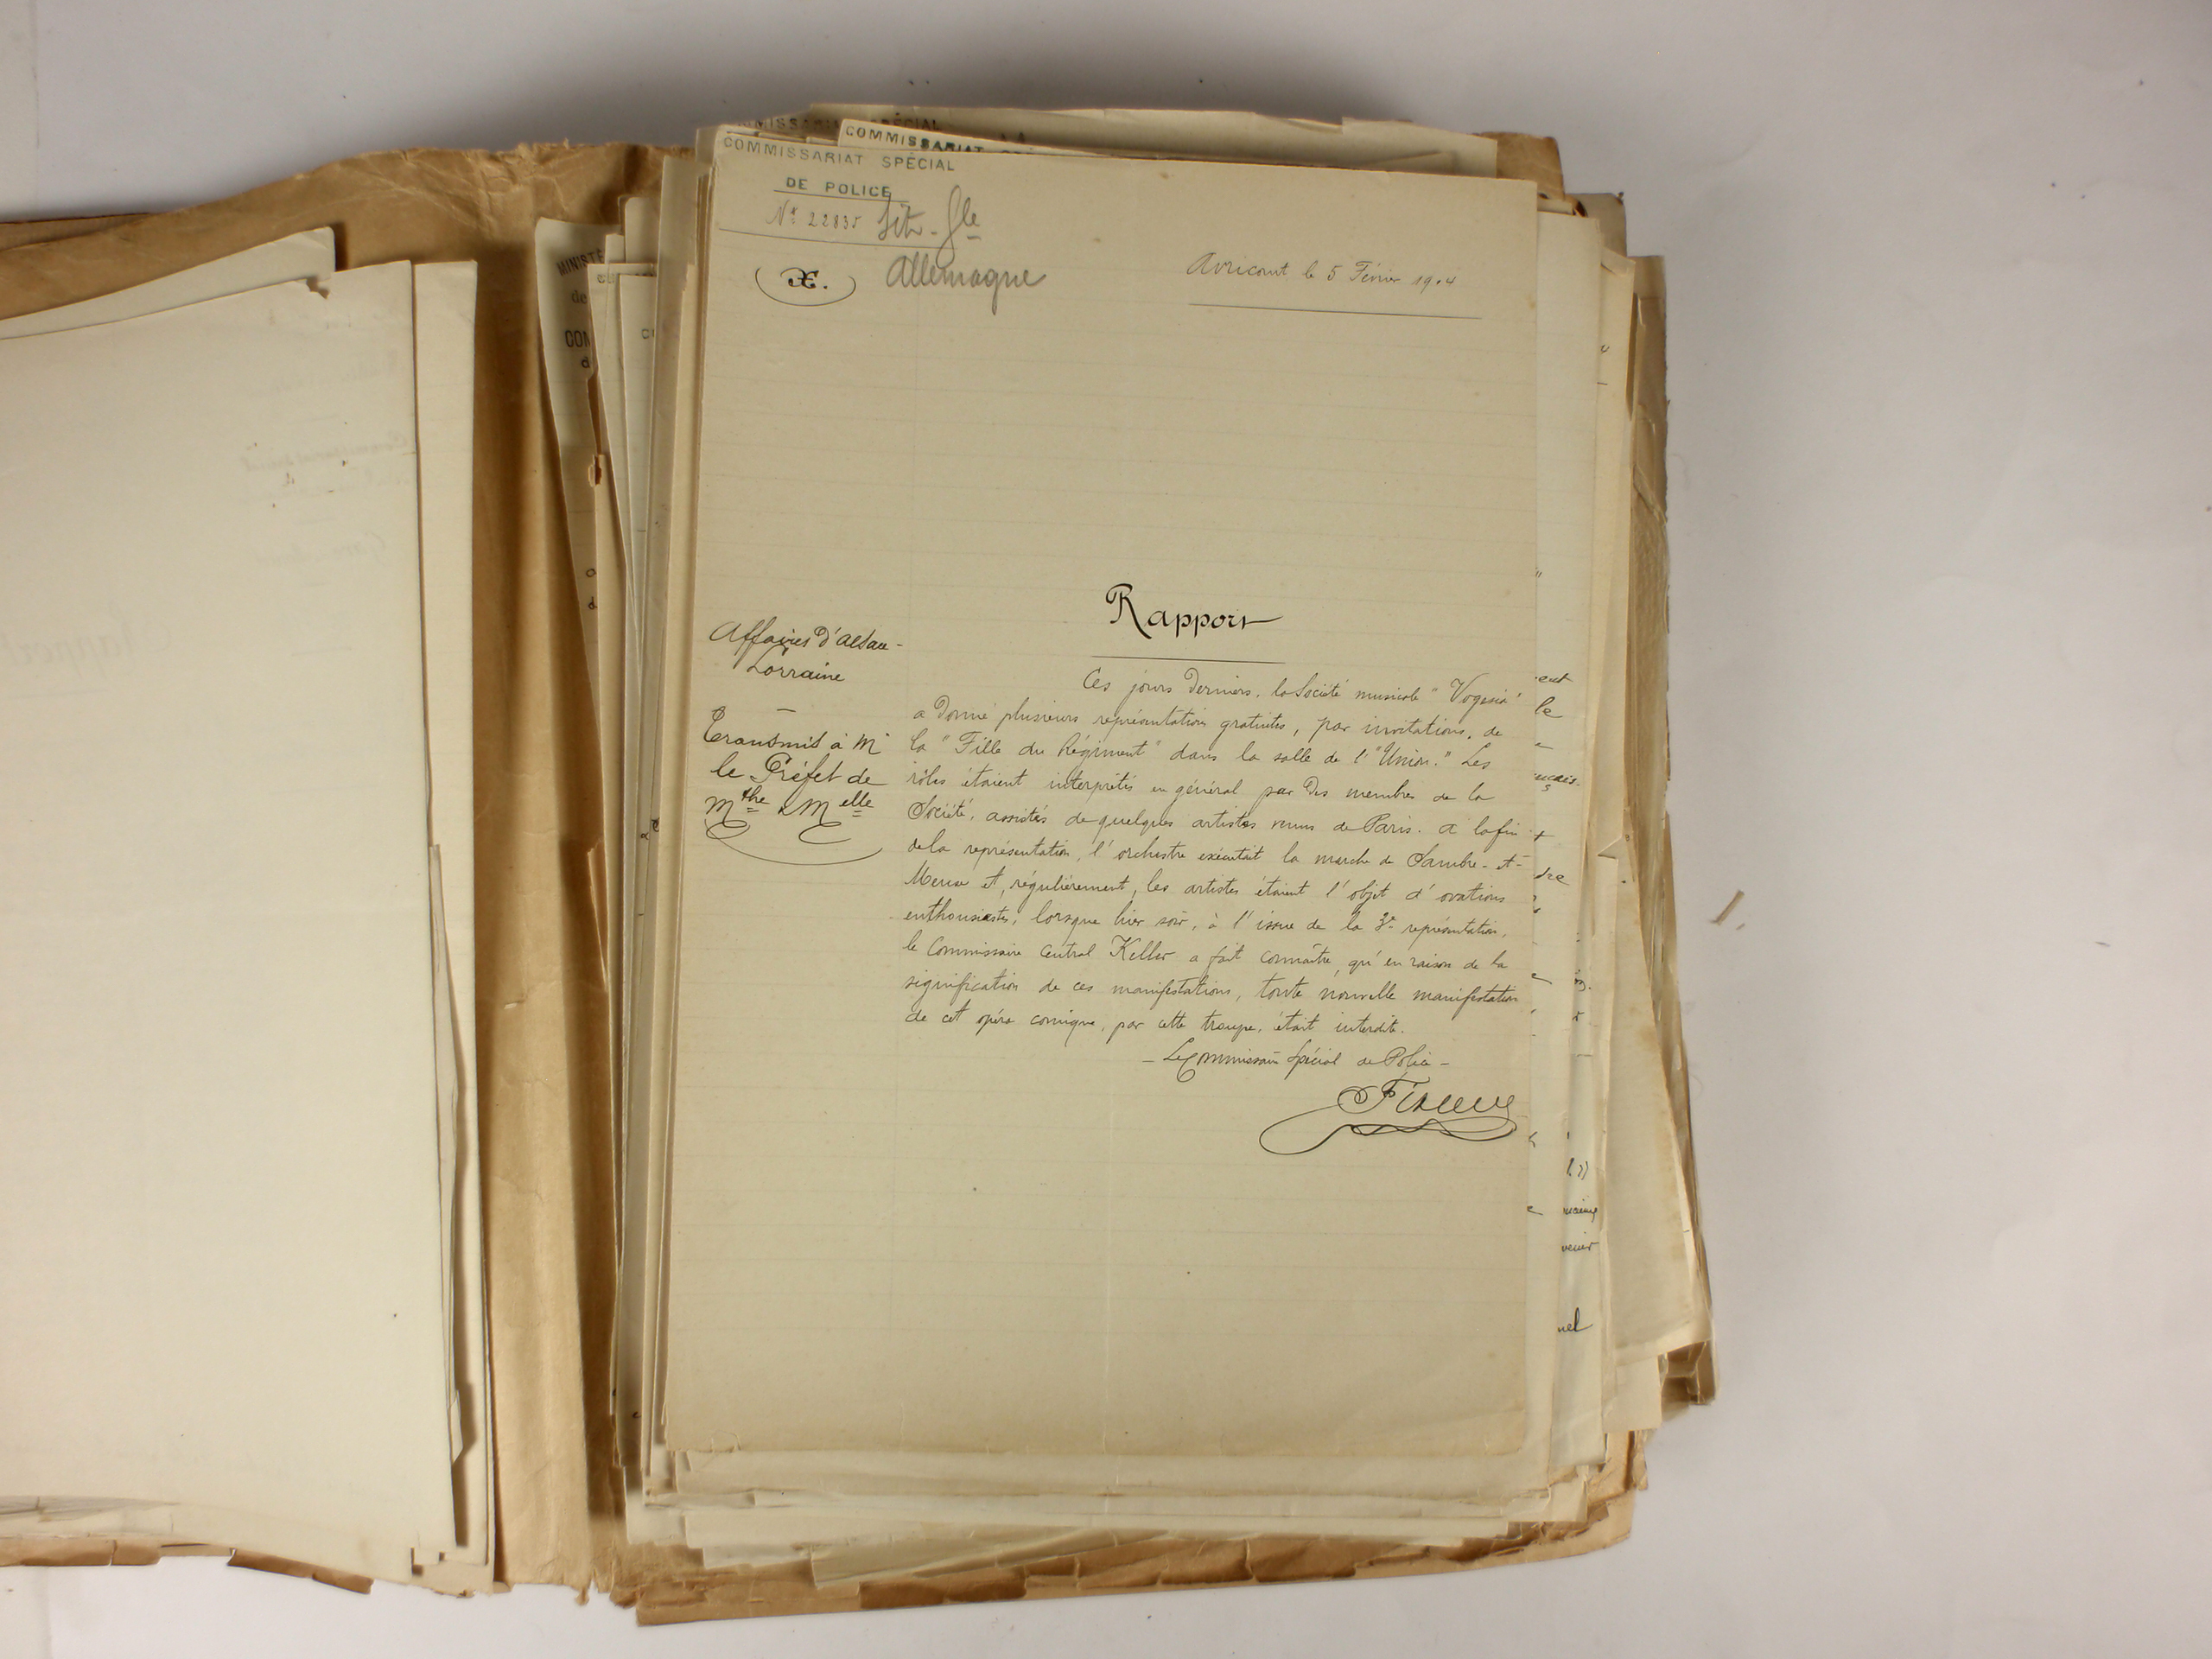 COMMISSARIAT SPÉCIAL
COMMISSARIAT
COMMISSARIAT SPÉCIAL
DE POLICE
N° 22835 Sit. Gle
Allemagne
Avricourt le 5 Février 1904
Rapport
Affaires d'Alsace-
Lorraine
Transmis à Mr
le Préfet de
Mthe & Melle
Ces jours derniers, la Société musicale "Vogesia"
a donné plusieurs représentations gratuites, par invitations, de
la "Fille du Régiment" dans la salle de l'"Union." Les
rôles étaient interprétés en général par des membres de la
Société, assistés de quelques artistes venus de Paris. A la fin
de la représentation, l'orchestre exécutait la marche de Sambre-et-
Meuse et, régulièrement, les artistes étaient l'objet d'ovations
enthousiastes, lorsque hier soir, à l'issue de la 3e représentation,
le Commissaire Central Keller a fait connaître, qu'en raison de la
signification de ces manifestations, toute nouvelle manifestation
de cet opéra comique, par cette troupe, était interdite.
- Le Commissaire Spécial de Police -
venir